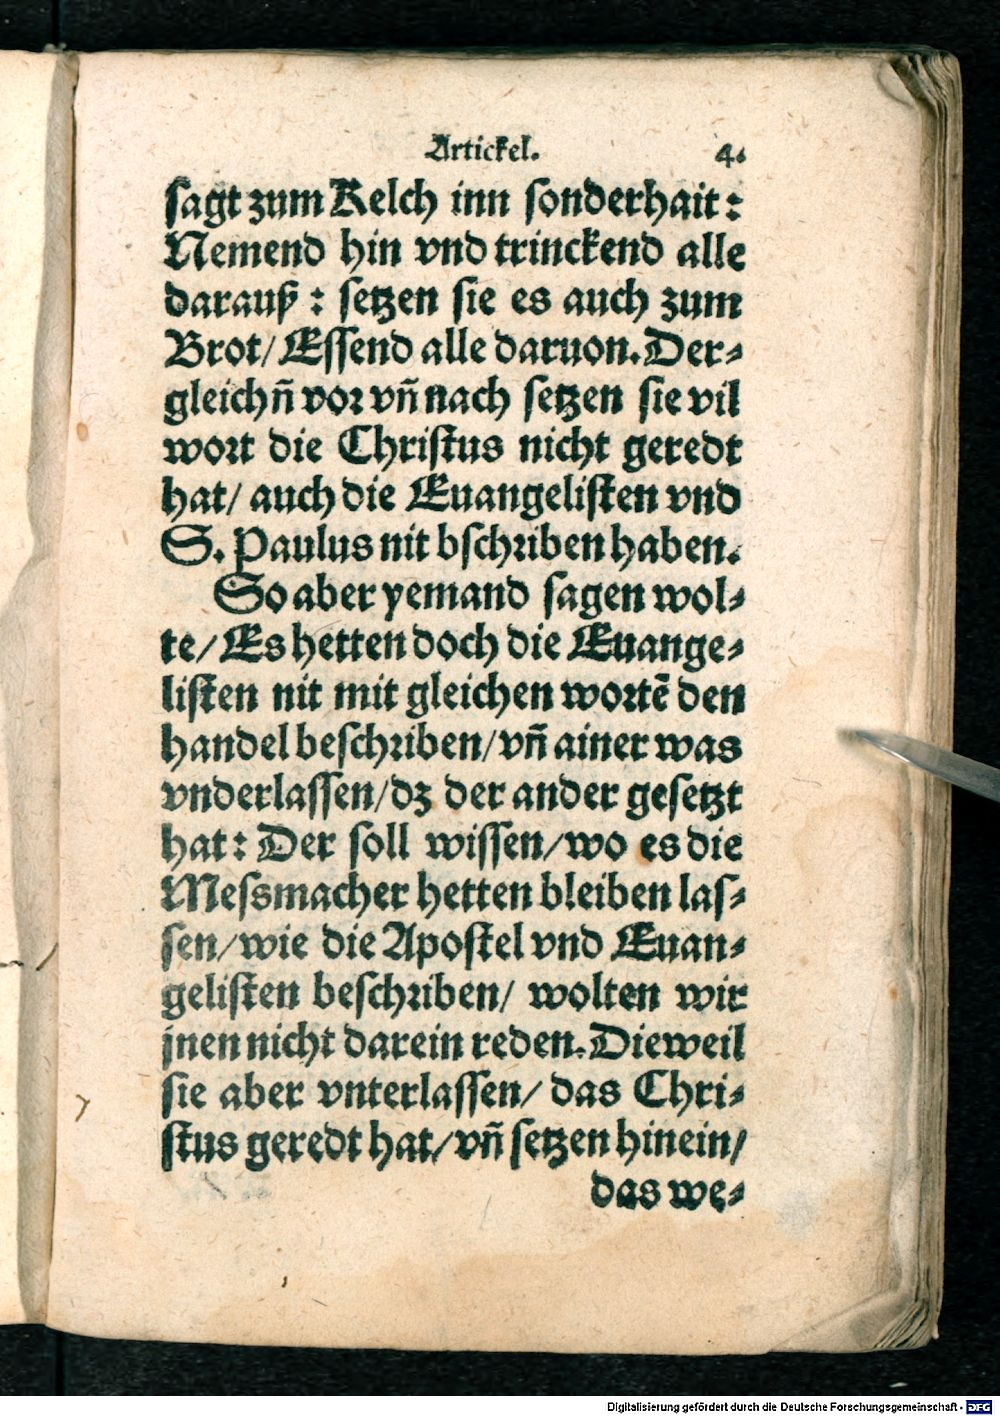 Artickel. 4.
sagt zum Kelch inn sonderhait:
Nemend hin vnd trinckend alle
darauß : setzen sie es auch zum
Brot/ Essend alle daruon. Der⸗
gleichñ vor vñ nach setzen sie vil
wort die Christus nicht geredt
hat/ auch die Euangelisten vnd
S. Paulus nit bschriben haben.
So aber yemand sagen wol⸗
te/ Es hetten doch die Euange⸗
listen nit mit gleichen wortē den
handel beschriben/ vñ ainer was
vnderlassen/ dz der ander gesetzt
hat: Der soll wissen/ wo es die
Messmacher hetten bleiben las⸗
sen/ wie die Apostel vnd Euan⸗
gelisten beschriben/ wolten wir
jnen nicht darein reden. Dieweil
sie aber vnterlassen/ das Chri⸗
stus geredt hat/ vñ setzen hinein/
das we⸗
Digitalisierung gefördert durch die Deutsche Forschungsgemeinschaft - DFG